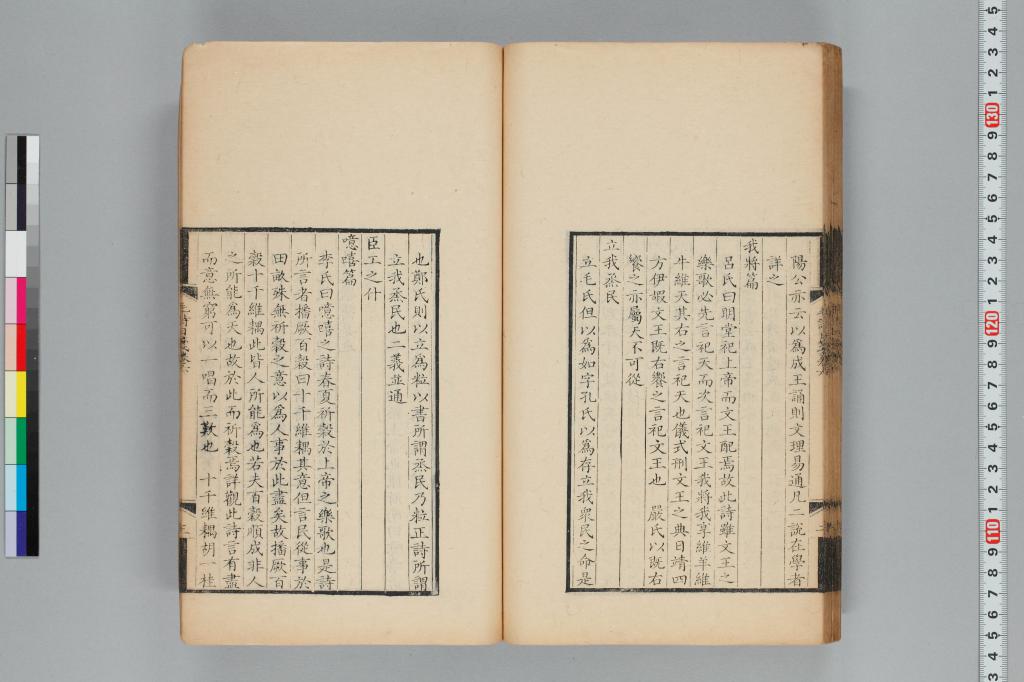 陽公亦云以為成王誦則文理易通凡二說在學者
詳之
我將篇
呂氏曰明堂祀上帝而文王配焉故此詩雖文王之
樂歌必先言祀天而次言祀文王我將我享維羊維
牛維天其右之言祀天也儀式刑文王之典日靖四
方伊嘏文王既右饗之言祀文王也 嚴氏以既右
饗之亦屬天不可從
立我烝民
立毛氏但以為如字孔氏以為存立我衆民之命是
也鄭氏則以立為粒以書所謂烝民乃粒正詩所謂
立我烝民也二義並通
臣工之什
噫嘻篇
李氏曰噫嘻之詩春夏祈穀於上帝之樂歌也是詩
所言者播厥百穀曰十千維耦其意但言民從事於
田畝殊無祈穀之意以為人事於此盡矣故播厥百
穀十千維耦此皆人所能為也若夫百穀順成非人
之所能為天也故於此而祈穀焉詳觀此詩言有盡
而意無窮可以一唱而三歎也 十千維耦胡一桂
130
120
110